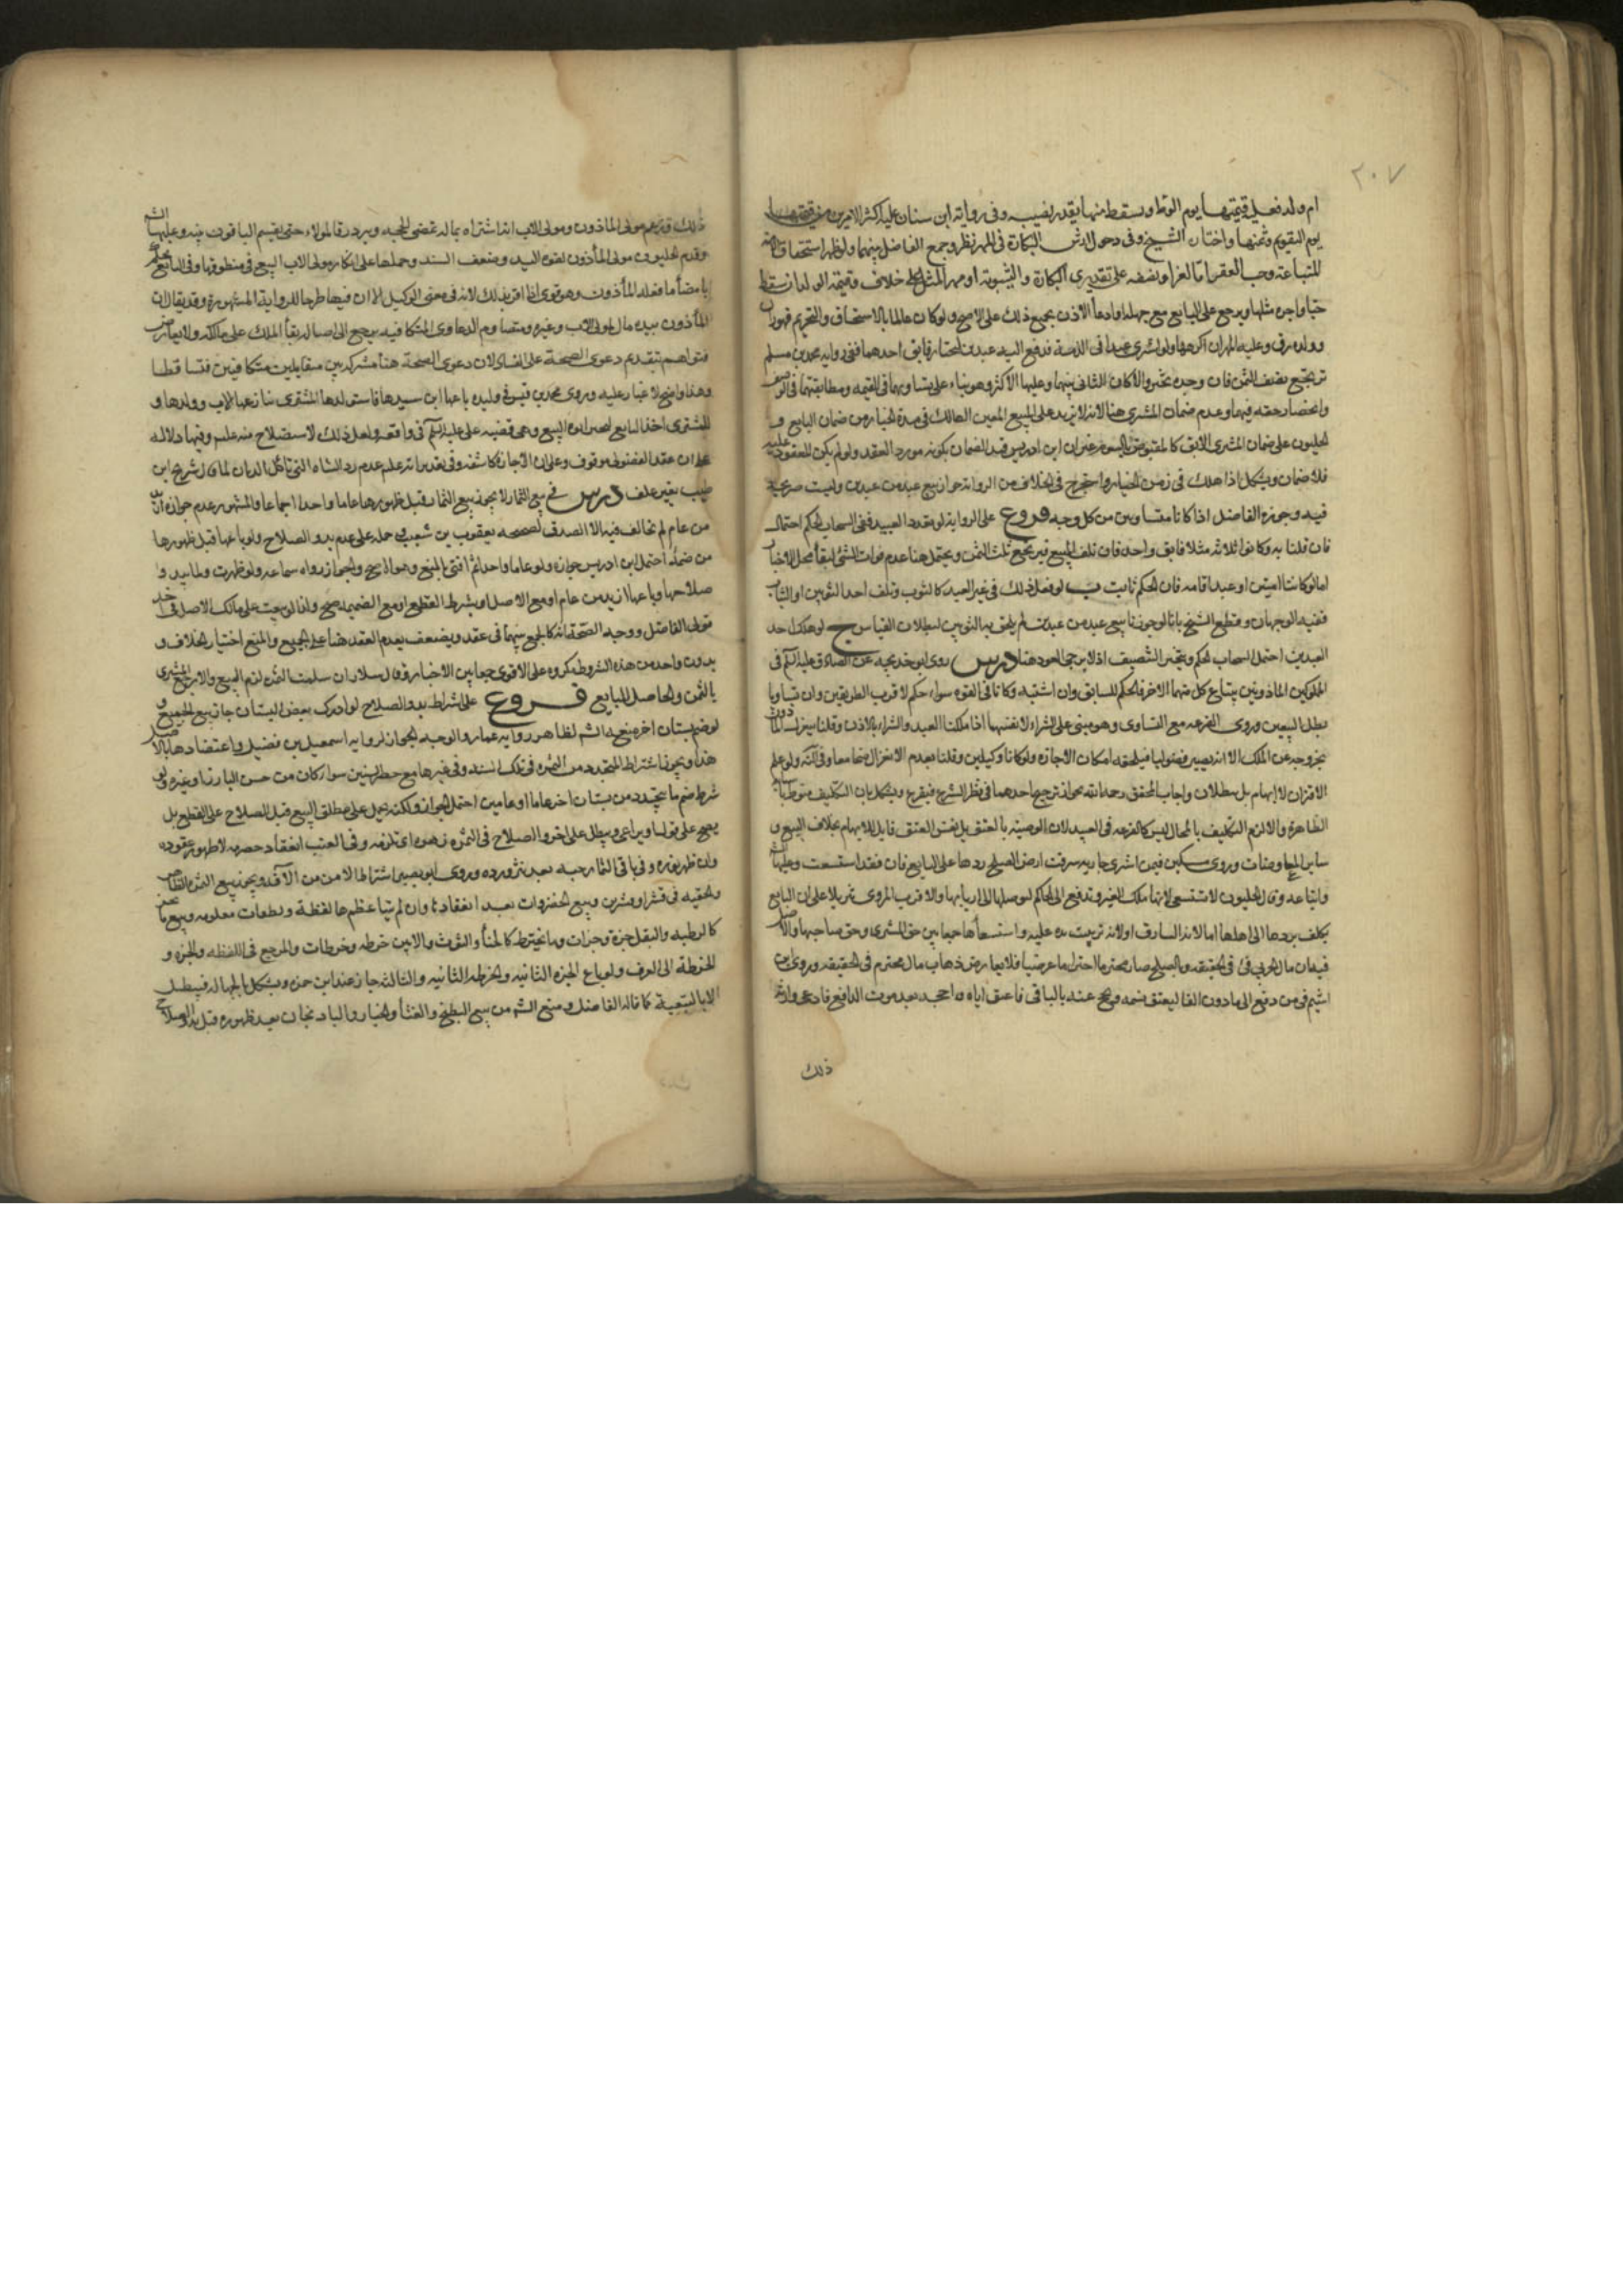 ٢٠٧
ام ولد فعليه قيمتها يوم الوطء ويسقط منها بقدر نصيبه وفي رواية ابن سنان عليه اكثر الامرين من قيمتها
يوم التقويم وثمنها واختاره الشيخ وفي دخول ارش البكارة في المهر نظر وجمع الفاضل بينهما ولو ظهر استحقاق الامة
المتباعة وجب العقر اما العشر او نصفه على تقديري البكارة والثيبوبة او مهر المثل على خلاف وقيمة الولد ان سقط
حيا واجرة مثلها ويرجع على البايع مع جهله او ادعاء الاذن بجميع ذلك على الاصح ولو كان عالما بالاستحقاق والتحريم فهو زان
وولده رق وعليه المهر ان اكرهها ولو اشترى عبدا في الذمة فدفع اليه عبدين ليختار فابق احدهما ففي رواية محمد بن مسلم
يرتجع نصف الثمن فان وجده تخير والا كان الثاني بينهما وعليها الاكثر وهو بناء على تساويهما في القيمة ومطابقتهما في الوصف
وانحصار حقه فيهما وعدم ضمان المشتري هنا لانه لا يزيد على المبيع المعين الهالك في مدة الخيار من ضمان البايع و
الحليون على ضمان المشتري الابق كالمقبوض بالسوم غير ان ابن ادريس قيد الضمان بكونه مورد العقد ولو لم يكن المعقود عليه
فلا ضمان ويشكل اذا هلك في زمن الخيار واستخرج في الخلاف من الرواية جواز بيع عبد من عبدين وليست صريحة
فيه وجوزه الفاضل اذا كانا متساويين من كل وجه فروع على الرواية لو تعدد العبيد ففي انسحاب الحكم احتمال
فان قلنا به وكانوا ثلاثة مثلا فابق واحد فان تلف المبيع فيرتجع ثلث الثمن ويحتمل هنا عدم فوات الشيء لبقاء محل الاختيار
اما لو كانتا امتين او عبدا وامة فان الحكم ثابت ب لو فعل ذلك في غير العبيد كالثوب وتلف احد الثوبين او الثياب
ففيه الوجهان وقطع الشيخ بانا لو جوزنا بيع عبد من عبدين لم يلحق به الثوبين لبطلان القياس ج لو هلك احد
العبدين احتمل انسحاب الحكم ويتخير التنصيف اذ لا يرجى العود هنا درس روى ابو خديجة عن الصادق عليه السلم في
المملوكين الماذونين يبتاع كل منهما الاخر فالحكم للسابق وان اشتبه وكانا في القوة سواء حكم لاقرب الطريقين وان تساويا
بطل البيعين وروي القرعة مع التساوي وهو مبني على الشراء لانفسهما اذا ملكنا العبد والشراء بالاذن وقلنا ينعزل الماذون
بخروجه عن الملك الا انه يصير فضوليا فيلحقه امكان الاجازة ولو كانا وكيلين وقلنا بعدم الانعزال صحا معا وفي الكنه ولو علم
الاقتران لا ابهام بل بطلان واجاب المحقق رحمه الله بجواز ترجيح احدهما في نظر الشرع فيقرع ويشكل بان التكليف منوط باسبابه
الظاهرة والا لزم التكليف بالمحال ليس كالقرعة في العبيد لان الوصية بالعتق بل نفس العتق قابل للابهام بخلاف البيع و
ساير المعاوضات وروى مسكين فيمن اشترى جارية سرقت من ارض الصلح ردها على البايع فان فقد استسعت وعليها الشيخ
واتباعه وقال الحليون لا تستسعى لانها ملك الغير وتدفع الى الحاكم ليوصلها الى اربابها والاقرب المروي تنزيلا على ان البايع
يكلف بردها الى اهلها اما لانه السارق او لانه ترتبت يده عليه واستسعاؤها جمعا بين حق المشتري وحق صاحبها والاصل
فيه ان مال الحربي فئ في الحقيقة وبالصلح صار محترما احتراما عرضيا فلا يعارض ذهاب مال محترم في الحقيقة وروى ابن
اشيم فيمن دفع الى ماذون الفا ليعتق نسمة ويحج عنه بالباقي فاعتق اباه واحجه بعد موت الدافع فادعى وارثه
ذلك
ذلك وزعم مولى الماذون ومولى الاب انه اشتراه بماله تمضى الحجة ويرد رقا لمولاه حتى يقيم الباقون بينة وعليها الشيخ
وقدم الحليون مولى الماذون لقوة اليد وضعف السند وحملها على انكار مولى الاب البيع في منطوقها وفي النافع يحكم
بامضاء ما فعله المأذون وهو قوي اذا اقر بذلك لانه في معنى الوكيل الا ان فيها طرحا للرواية المشهورة وقد يقال ان
المأذون بيده مال لمولى الاب وغيره وبتصادم الدعاوى المتكافية يرجع الى اصالة بقاء الملك على مالكه ولا يعارضه
فتواهم بتقديم دعوى الصحة على الفساد لان دعوى الصحة هنا مشتركة بين متقابلين متكافيين فتساقطا
وهذا واضح لا غبار عليه وروى محمد بن قيس في وليدة باعها ابن سيدها فاستولدها المشتري ينازعها الاب وولدها و
للمشتري اخذ البايع ليجيز ابوه البيع وهي قضية علي عليه السلم في واقعة ولعل ذلك لاستصلاح منه عليه السلم وفيها دلالة
على ان عقد الفضولي موقوف وعلى ان الاجازة كاشفة وفي
طيب بغير علف درس في بيع الثمار لا يجوز بيع الثمار قبل ظهورها عاما واحدا اجماعا والمشهور عدم جوازه ازيد
من عام لم يخالف فيه الا الصدوق لصحيحة يعقوب بن شعيب وحمله على عدم بدو الصلاح ولو باعها قبل ظهورها
من ضميمة احتمل ابن ادريس جوازه ولو عاما واحدا ثم افتى بالمنع وهو الاصح والجواز رواه سماعة ولو ظهرت ولما يبد و
صلاحها وباعها ازيد من عام او مع الاصل او بشرط القطع او مع الضميمة صح وان لو بيعت على مالك الاصل في احد
قولي الفاضل ووجه الصحة انه كالجمع بينهما في عقد ويضعف بعدم العقد هنا على الجميع والمنع اختيار الخلاف و
بدون واحد من هذه الشروط يكره على الاقوى جمعا بين الاخبار وقال سلار ان سلمت الثمرة لزم البيع والا رجع المشتري
بالثمن والحاصل للبايع فروع على اشتراط بدو الصلاح لو ادرك بعض البستان جاز بيع الجميع و
لو ضم بستان اخر منع الشيخ لظاهر رواية عمار والوجه الجواز لرواية اسمعيل بن فضيل واعتضادها بالاصل
هذا ويجوز اشتراط المتجدد من الثمرة في تلك السنة وفي غيرها مع حصر السنين سواء كان من جنس البارز او غيره ولو
شرط ضم ما يتجدد من بستان اخر عاما او عامين احتمل الجواز ولكنه يحمل على مطلق البيع قبل الصلاح على القطع بل
يصح على قولنا ويراعى ويبطل على اخر والصلاح في الثمرة زهوه اي تلونه وفي العنب انعقاد حصرمه لا ظهور عنقوده
وان ظهر نوره وفي باقي الثمار حبه بعد نثر ورده وروى ابو بصير اشتراط الامن من الآفة ويجوز بيع الثمرة الظاهرة
والخفية في قشر او قشرين وبيع الخضروات بعد انعقادها وان لم يتناه عظمها لقطة ولقطات معلومة وبيع ما يجز
كالرطبة والبقل جزة وجزات وما يخترط كالحناء والتوت والآس خرطة وخرطات والمرجع في اللقطة والجزة و
الخرطة الى العرف ولو باع الجزة الثانية والخرطة الثانية والثالثة جاز عند ابن حمزة ويشكل بالجهالة فيبطل
الا بالتبعية كما قاله الفاضل ومنع الشيخ من بيع البطيخ والقثاء والخيار والبادنجان بعد ظهوره قبل بدو الصلاح